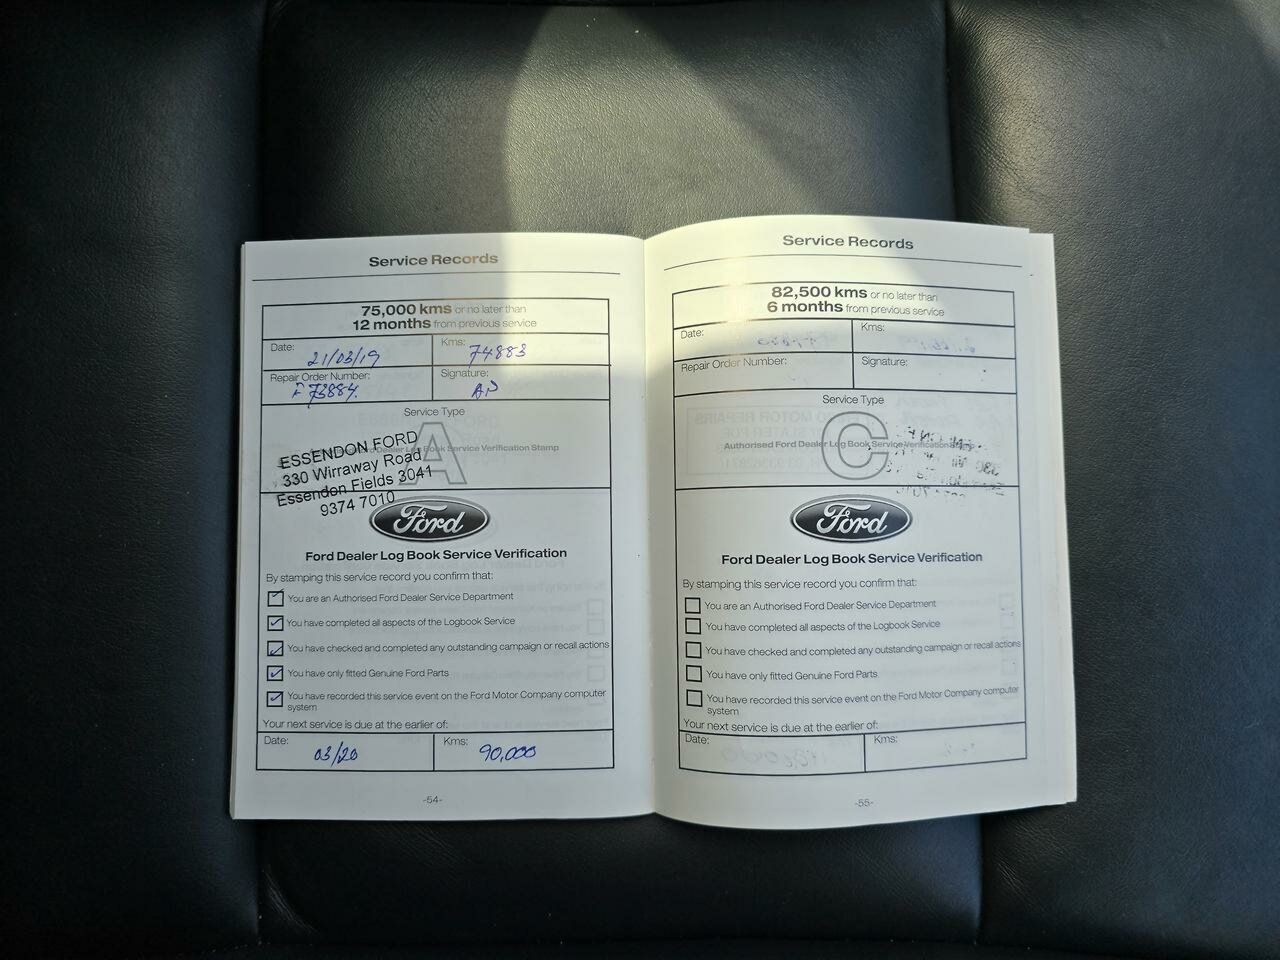 Service Records
75,000 kms or no later than
12 months from previous service
Date: 21/03/19
Kms: 74883
Repair Order Number: F 73884.
Signature: AP
Service Type
A
Authorised Ford Dealer Log Book Service Verification Stamp
ESSENDON FORD
330 Wirraway Road
Essendon Fields 3041
9374 7010
Ford
Ford Dealer Log Book Service Verification
By stamping this service record you confirm that:
You are an Authorised Ford Dealer Service Department
You have completed all aspects of the Logbook Service
You have checked and completed any outstanding campaign or recall actions
You have only fitted Genuine Ford Parts
You have recorded this service event on the Ford Motor Company computer
system
Your next service is due at the earlier of:
Date: 03/20
Kms: 90,000
-54-
Service Records
82,500 kms or no later than
6 months from previous service
Date:
Kms:
Repair Order Number:
Signature:
Service Type
C
Authorised Ford Dealer Log Book Service Verification Stamp
Ford
Ford Dealer Log Book Service Verification
By stamping this service record you confirm that:
You are an Authorised Ford Dealer Service Department
You have completed all aspects of the Logbook Service
You have checked and completed any outstanding campaign or recall actions
You have only fitted Genuine Ford Parts
You have recorded this service event on the Ford Motor Company computer
system
Your next service is due at the earlier of:
Date:
Kms:
-55-